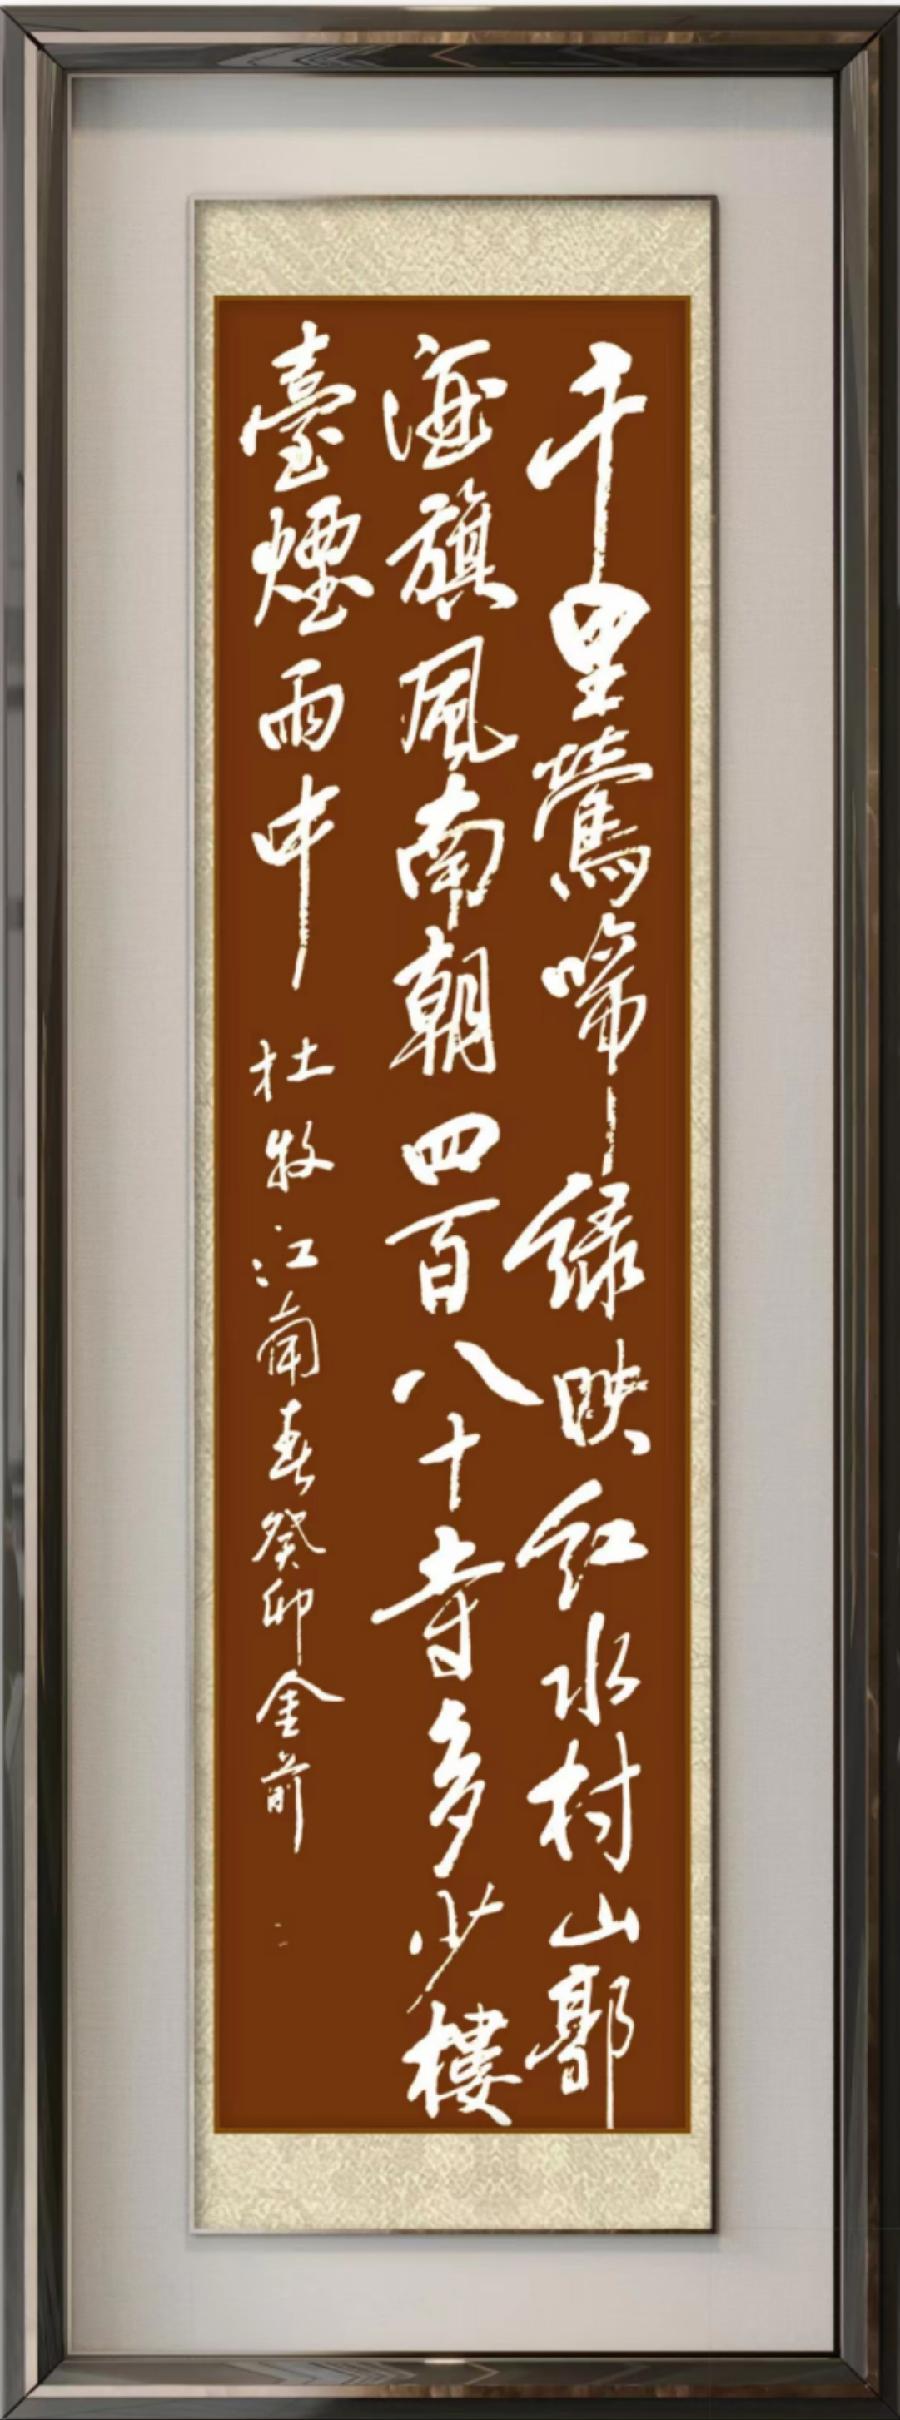 千里鶯啼綠映紅水村山郭
酒旗風南朝四百八十寺多少樓
臺煙雨中 杜牧江南春癸卯金前